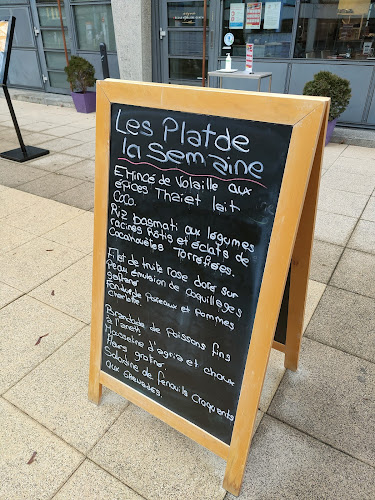 Les Plat de
la semaine
Emincé de Volaille aux
épices Thaï et lait
Coco.
Riz basmati aux légumes
racines Rôtis et éclats de
Cacahouètes Torréfiées.
Filet de truite rose doré sur
peau émulsion de coquillages
Fondue de Poireaux et pommes
charlotte
Brandade de Poissons fins
à l'aneth
Mousseline d'agria et choux
fleurs gratiné.
Saladine de fenouils croquants
aux